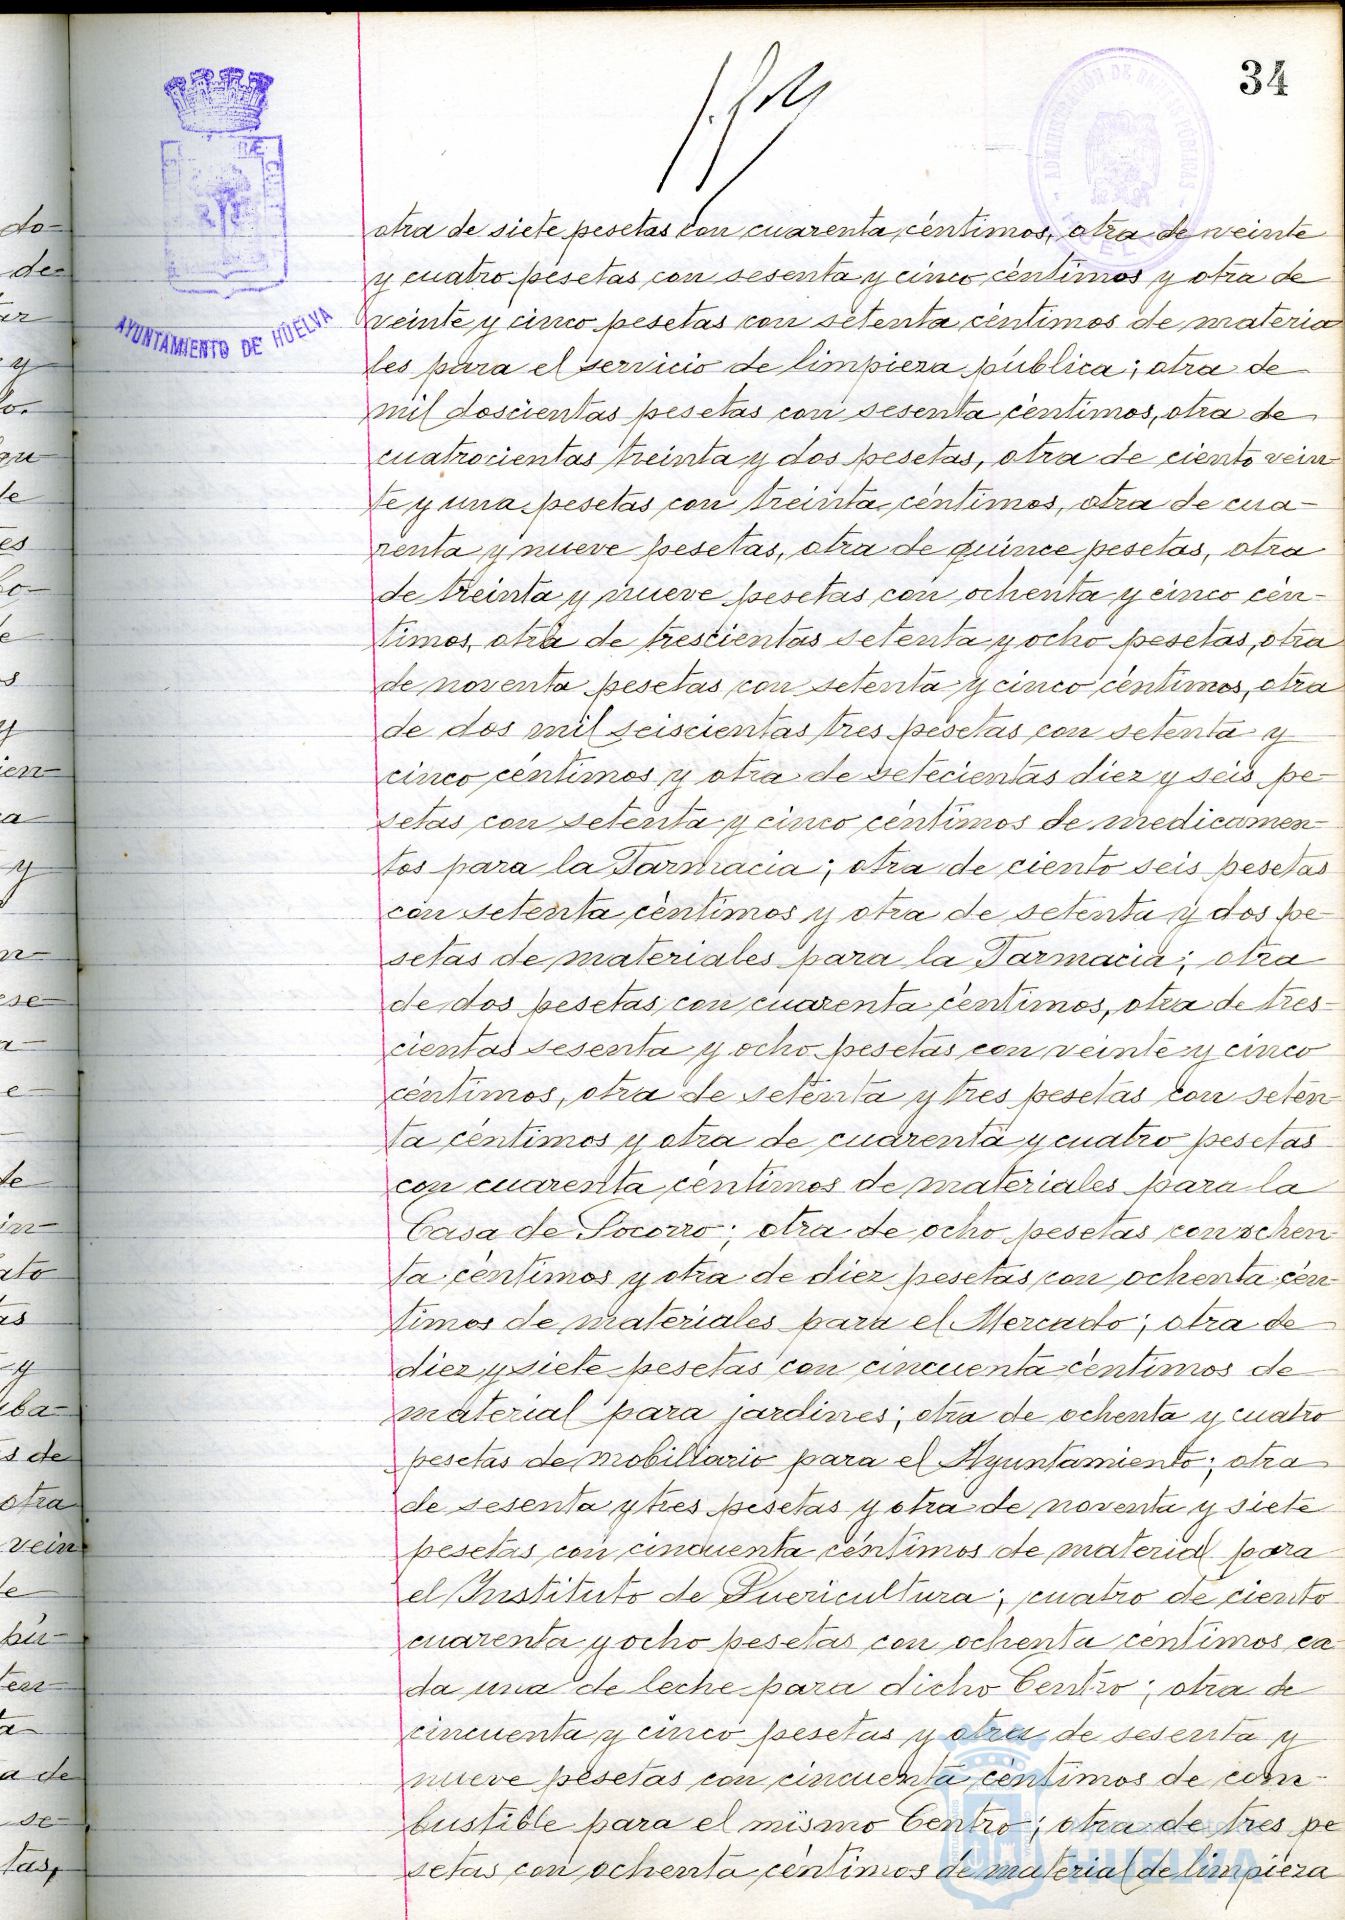 34
AYUNTAMIENTO DE HUELVA
ADMINISTRACIÓN DE PÚBLICAS
otra de siete pesetas con cuarenta céntimos, otra de veinte
y cuatro pesetas con sesenta y cinco céntimos y otra de
veinte y cinco pesetas con setenta céntimos de materia
les para el servicio de limpieza pública; otra de
mil doscientas pesetas con sesenta céntimos, otra de
cuatrocientas treinta y dos pesetas, otra de ciento vein
te y una pesetas con treinta céntimos, otra de cua-
renta y nueve pesetas, otra de quince pesetas, otra
de treinta y nueve pesetas con ochenta y cinco cén-
timos, otra de trescientas setenta y ocho pesetas, otra
de noventa pesetas con setenta y cinco céntimos, otra
de dos mil seiscientas tres pesetas con setenta y
cinco céntimos y otra de setecientas diez y seis pe-
setas con setenta y cinco céntimos de medicamen-
tos para la Farmacia; otra de ciento seis pesetas
con setenta céntimos y otra de setenta y dos pe-
setas de materiales para la Farmacia; otra
de dos pesetas con cuarenta céntimos, otra de tres-
cientas sesenta y ocho pesetas con veinte y cinco
céntimos, otra de setenta y tres pesetas con seten
ta céntimos y otra de cuarenta y cuatro pesetas
con cuarenta céntimos de materiales para la
Casa de Socorro; otra de ocho pesetas con ochen
ta céntimos y otra de diez pesetas con ochenta cén-
timos de materiales para el Mercado; otra de
diez y siete pesetas con cincuenta céntimos de
material para jardines; otra de ochenta y cuatro
pesetas de mobiliario para el Ayuntamiento; otra
de sesenta y tres pesetas y otra de noventa y siete
pesetas con cincuenta céntimos de material para
el Instituto de Puericultura; cuatro de ciento
cuarenta y ocho pesetas con ochenta céntimos ca
da una de leche para dicho Centro; otra de
cincuenta y cinco pesetas y otra de sesenta y
nueve pesetas con cincuenta céntimos de com-
bustible para el mismo Centro; otra de tres pe
setas con ochenta céntimos de material de limpieza
HUELVA